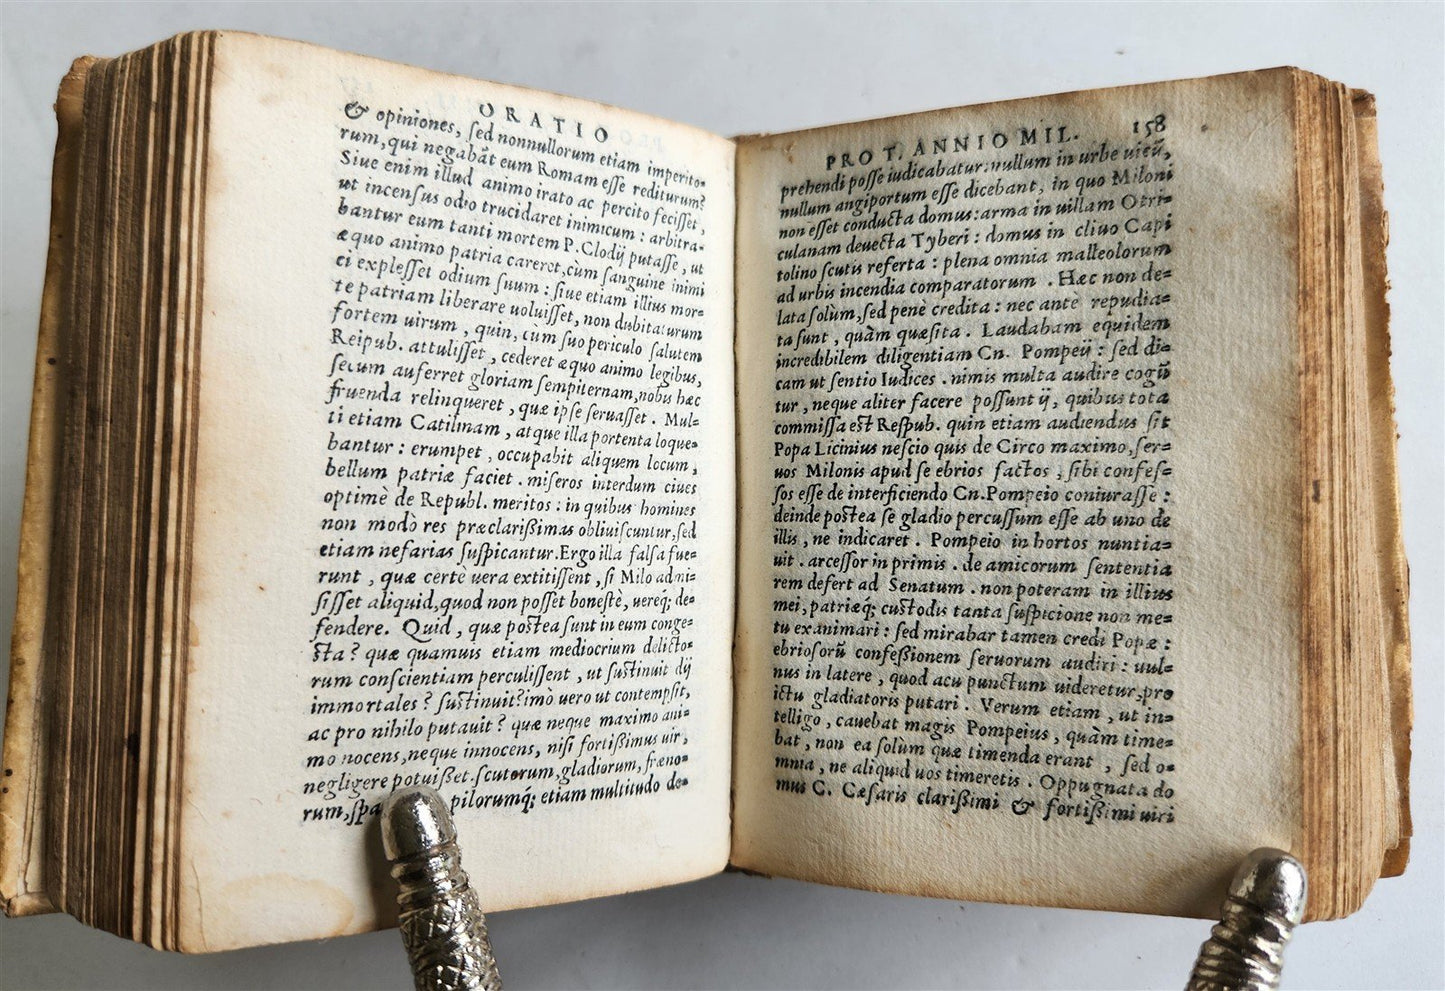 ORATIO
& opiniones, sed nonnullorum etiam imperito=
rum, qui negabāt eum Romam esse rediturum?
Siue enim illud animo irato ac percito fecisset,
ut incensus odio trucidaret inimicum : arbitra=
bantur eum tanti mortem P. Clodij putasse, ut
æquo animo patria careret, cùm sanguine inimi
ci explesset odium suum : siue etiam illius mor=
te patriam liberare uoluisset, non dubitaturum
fortem uirum, quin, cùm suo periculo salutem
Reipub. attulisset, cederet æquo animo legibus,
secum auferret gloriam sempiternam, nobis hæc
fruenda relinqueret, quæ ipse seruasset. Mul=
ti etiam Catilinam, atque illa portenta loque=
bantur : erumpet, occupabit aliquem locum,
bellum patriæ faciet. miseros interdum ciues
optimè de Republ. meritos : in quibus homines
non modò res præclarißimas obliuiscuntur, sed
etiam nefarias suspicantur. Ergo illa falsa fue=
runt, quæ certè uera extitissent, si Milo admi=
sisset aliquid, quod non posset honestè, uereq́; de=
fendere. Quid, quæ postea sunt in eum conge=
sta? quæ quamuis etiam mediocrium delicto=
rum conscientiam perculissent, ut sustinuit dij
immortales? sustinuit? imò uero ut contempsit,
ac pro nihilo putauit? quæ neque maximo ani=
mo nocens, neque innocens, nisi fortißimus uir,
negligere potuisset. scutorum, gladiorum, fræno=
rum, spa pilorumq́; etiam multitudo de=
PRO T. ANNIO MIL. 158
prehendi posse iudicabatur: nullum in urbe uicū,
nullum angiportum esse dicebant, in quo Miloni
non esset conducta domus: arma in uillam Otri=
culanam deuecta Tyberi : domus in cliuo Capi
tolino scutis referta : plena omnia malleolorum
ad urbis incendia comparatorum. Hæc non de=
lata solùm, sed penè credita : nec antè repudia=
ta sunt, quàm quæsita. Laudabam equidem
incredibilem diligentiam Cn. Pompeij : sed di=
cam ut sentio Iudices. nimis multa audire cogū
tur, neque aliter facere possunt ij, quibus tota
commissa est Respub. quin etiam audiendus sit
Popa Licinius nescio quis de Circo maximo, ser=
uos Milonis apud se ebrios factos, sibi confes=
sos esse de interficiendo Cn. Pompeio coniurasse :
deinde postea se gladio percussum esse ab uno de
illis, ne indicaret. Pompeio in hortos nuntia=
uit. arcessor in primis. de amicorum sententia
rem defert ad Senatum. non poteram in illius
mei, patriæq́; custodis tanta suspicione non me=
tu exanimari : sed mirabar tamen credi Popæ :
ebriosorū confeßionem seruorum audiri : uul=
nus in latere, quod acu punctum uideretur, pro
ictu gladiatoris putari. Verum etiam, ut in=
telligo, cauebat magis Pompeius, quàm time=
bat, non ea solùm quæ timenda erant, sed o=
mnia, ne aliquid uos timeretis. Oppugnata do
mus C. Cæsaris clarißimi & fortißimi uiri